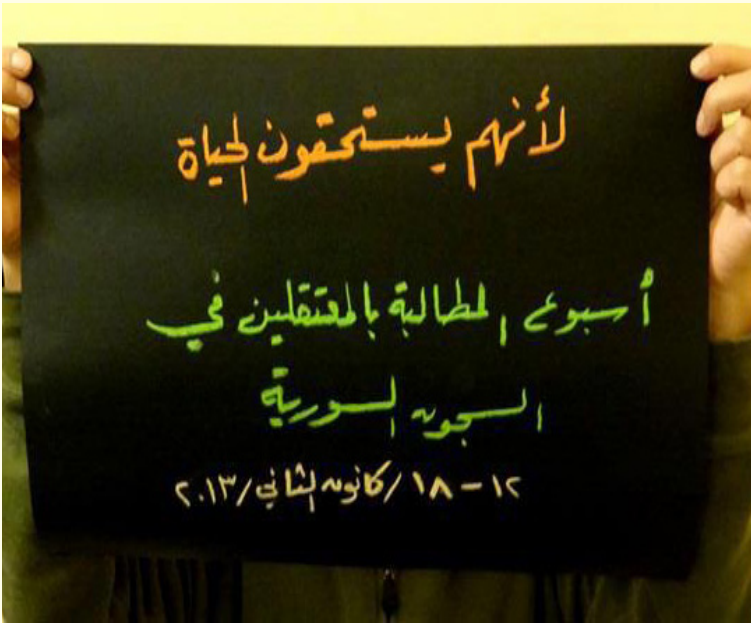 لأنهم يستحقون الحياة
أسبوع المطالبة بالمعتقلين في
السجون السورية
١٢ - ١٨ / كانون الثاني / ٢٠١٣